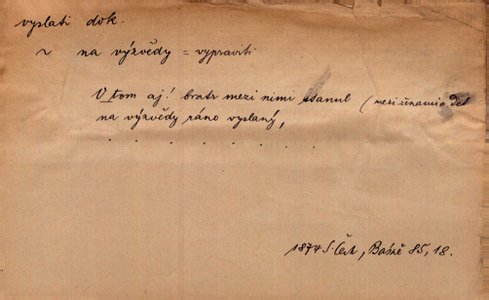 vyslati dok.
~ na výzvědy = vypraviti
V tom aj! bratr mezi nimi stanul (mezi ženami a
na výzvědy ráno vyslaný,
. . . . . . . .
1874 S. Čech, Básně 85, 18.